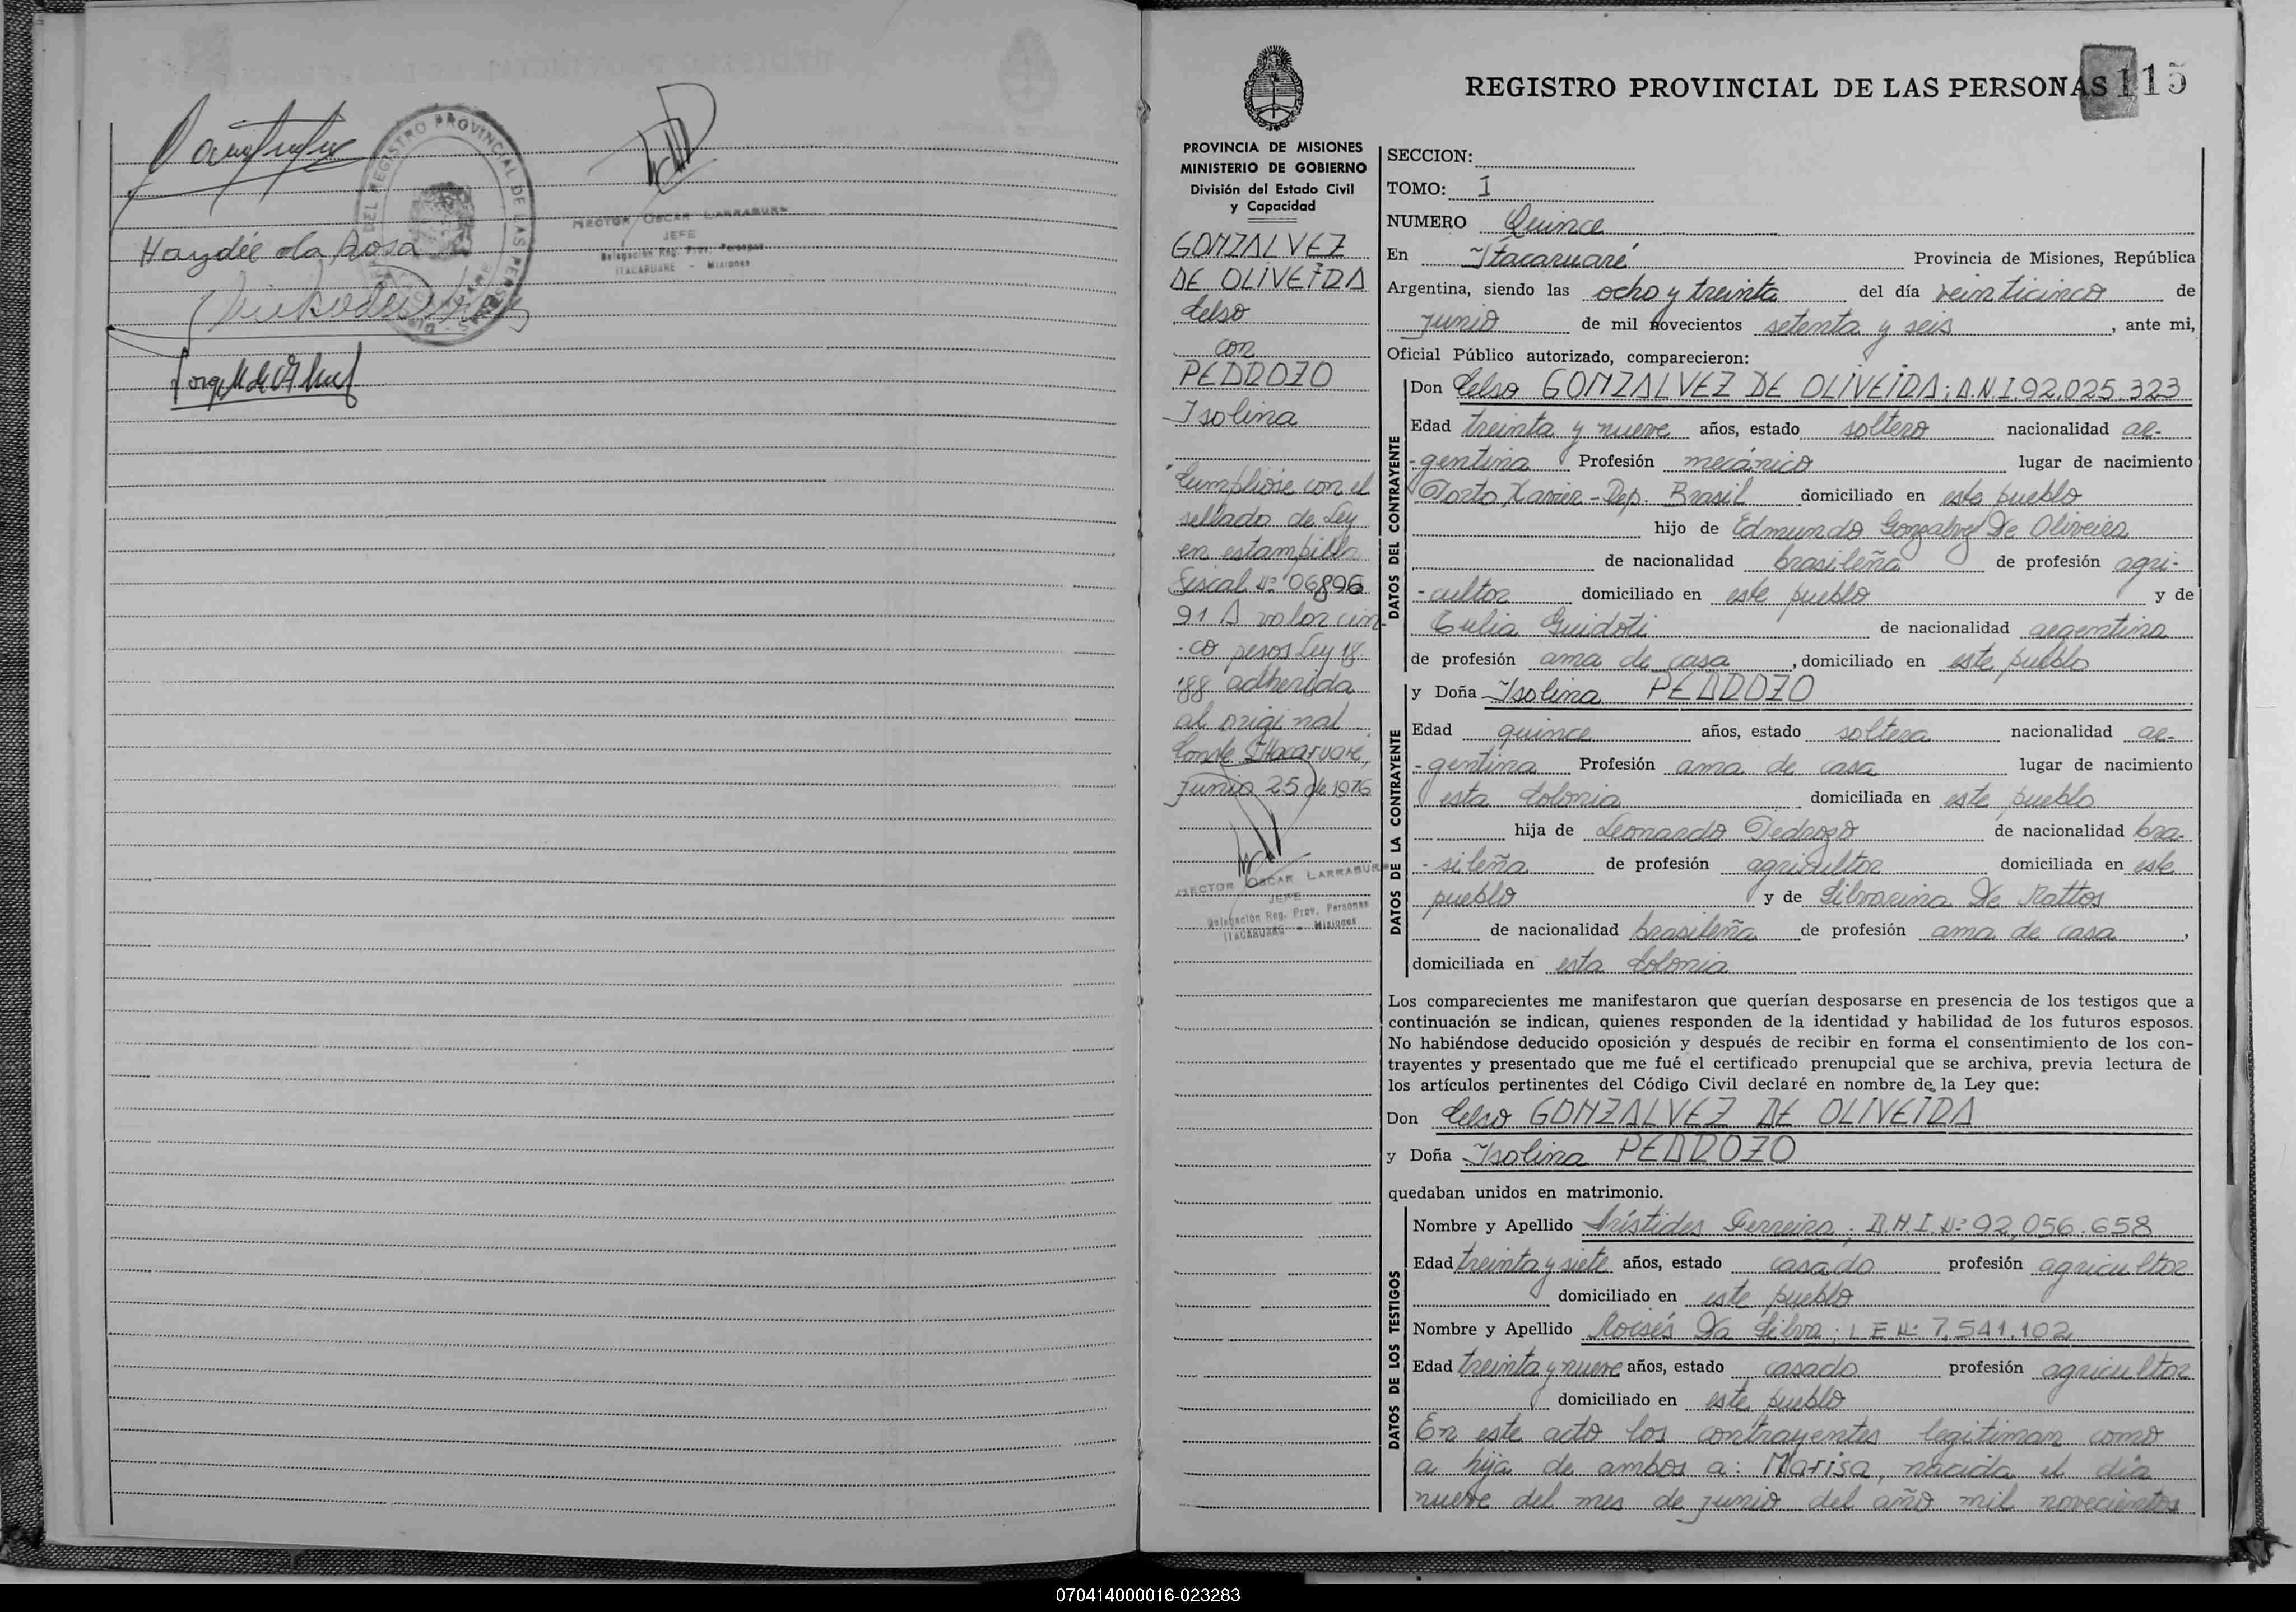 Haydée da Rosa
REGISTRO PROVINCIAL DE LAS PERSONAS
HECTOR OSCAR LARRABURE
JEFE
Delegación Reg. Prov. Personas
ITACARUARE - Misiones
REGISTRO PROVINCIAL DE LAS PERSONAS 115
PROVINCIA DE MISIONES
MINISTERIO DE GOBIERNO
División del Estado Civil
y Capacidad
GONZALVEZ
DE OLIVEIRA
Celso
con
PEDROZO
Isolina
Cumplióse con el
sellado de Ley
en estampilla
fiscal Nº 06896
91 A valor cin-
-co pesos Ley 18.
188 adherida
al original.
Conste Itacaruaré,
Junio 25 de 1976
HECTOR OSCAR LARRABURE
JEFE
Delegación Reg. Prov. Personas
ITACARUARE - Misiones
SECCION:
TOMO: I
NUMERO Quince
En Itacaruaré Provincia de Misiones, República
Argentina, siendo las ocho y treinta del día veinticinco de
junio de mil novecientos setenta y seis, ante mi,
Oficial Público autorizado, comparecieron:
DATOS DEL CONTRAYENTE
Don Celso GONZALVEZ DE OLIVEIRA; D.N.I. 92.025.323
Edad treinta y nueve años, estado soltero nacionalidad ar-
-gentina Profesión mecánico lugar de nacimiento
Porto Xavier - Rep. Brasil domiciliado en este pueblo
hijo de Edmundo Gonzalvez De Oliveira
de nacionalidad brasileña de profesión agri-
-cultor domiciliado en este pueblo y de
Tulia Guidoti de nacionalidad argentina
de profesión ama de casa, domiciliado en este pueblo
DATOS DE LA CONTRAYENTE
y Doña Isolina PEDROZO
Edad quince años, estado soltera nacionalidad ar-
-gentina Profesión ama de casa lugar de nacimiento
esta Colonia domiciliada en este pueblo
hija de Leonardo Pedrozo de nacionalidad bra-
-sileña de profesión agricultor domiciliada en este
pueblo y de Silvarina De Mattos
de nacionalidad brasileña de profesión ama de casa,
domiciliada en esta Colonia
Los comparecientes me manifestaron que querían desposarse en presencia de los testigos que a
continuación se indican, quienes responden de la identidad y habilidad de los futuros esposos.
No habiéndose deducido oposición y después de recibir en forma el consentimiento de los con-
trayentes y presentado que me fué el certificado prenupcial que se archiva, previa lectura de
los artículos pertinentes del Código Civil declaré en nombre de la Ley que:
Don Celso GONZALVEZ DE OLIVEIRA
y Doña Isolina PEDROZO
quedaban unidos en matrimonio.
DATOS DE LOS TESTIGOS
Nombre y Apellido Arístides Ferreira; D.N.I. Nº 92.056.658
Edad treinta y siete años, estado casado profesión agricultor
domiciliado en este pueblo
Nombre y Apellido Moisés Da Silva; L E Nº 7.541.102
Edad treinta y nueve años, estado casado profesión agricultor
domiciliado en este pueblo
En este acto los contrayentes legitiman como
a hija de ambos a: Marisa, nacida el día
nueve del mes de junio del año mil novecientos
070414000016-023283